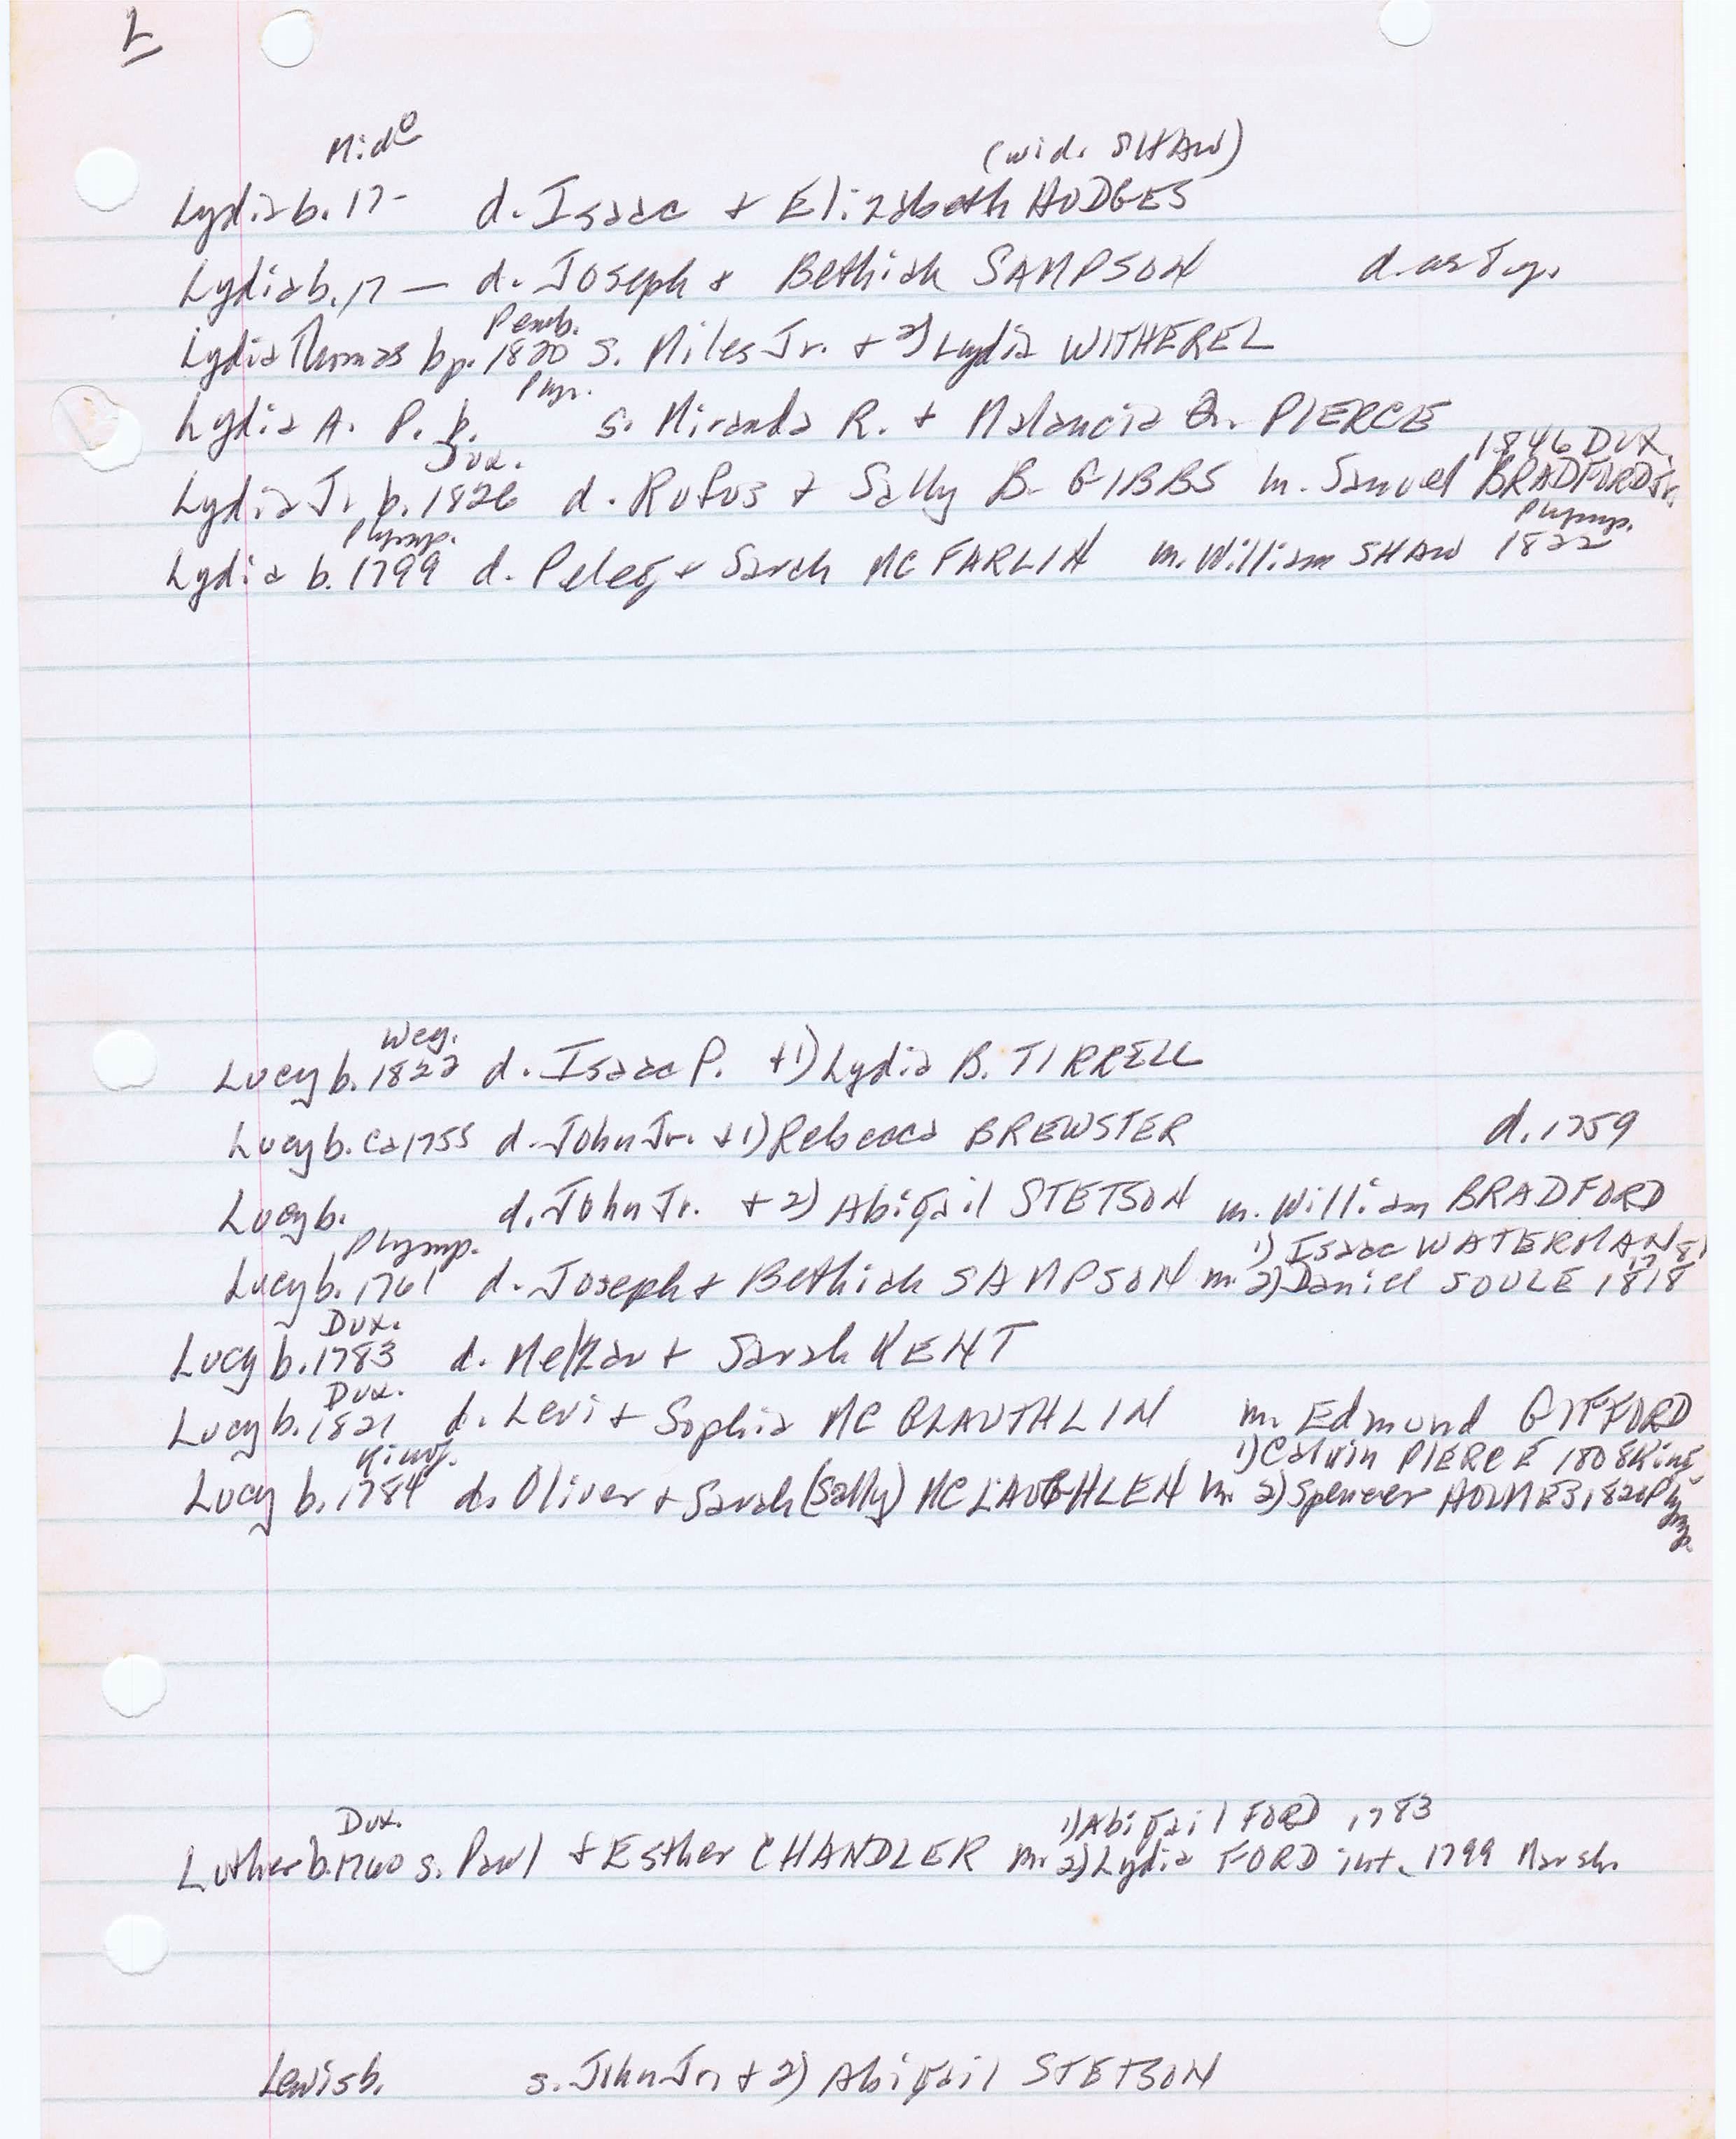 L
Mid⁰ (wid. SHAW)
Lydia b. 17- d. Isaac + Elizabeth HODGES
Lydia b. 17 — d. Joseph + Bethiah SAMPSON d. as y.
Pemb.
Lydia Thomas bp. 1820 s. Miles Jr. + 2) Lydia WITHEREL
Plym.
Lydia A. P. b. s. Miranda R. + Malancia PIERCE
Dux. 1846 DUX.
Lydia Jr b. 1826 d. Rufus + Sally B. GIBBS m. Samuel BRADFORD Jr.
Plymp. Plymp.
Lydia b. 1799 d. Peleg + Sarah MC FARLIN m. William SHAW 1822
Wey.
Lucy b. 1822 d. Isaac P. +1) Lydia B. TIRRELL
Lucy b. ca 1755 d. John Jr. +1) Rebecca BREWSTER d. 1759
Lucy b. d. John Jr. + 2) Abigail STETSON m. William BRADFORD
Plymp. 1) Isaac WATERMAN
Lucy b. 1761 d. Joseph + Bethiah SAMPSON m. 2) Daniel SOULE 1818
Dux.
Lucy b. 1783 d. Melzar + Sarah KENT
Dux.
Lucy b. 1821 d. Levi + Sophia MC GLAUTHLIN m. Edmund GIFFORD
King. 1) Calvin PIERCE 1808 King.
Lucy b. 1784 d. Oliver + Sarah (Sally) MC LAUGHLEN m. 2) Spencer HOLMES 1820 Plymp.
Dux. 1) Abigail FORD 1783
Luther b. 1760 s. Paul + Esther CHANDLER m. 2) Lydia FORD int. 1799 Marsh.
Lewis b. s. John Jr. + 2) Abigail STETSON